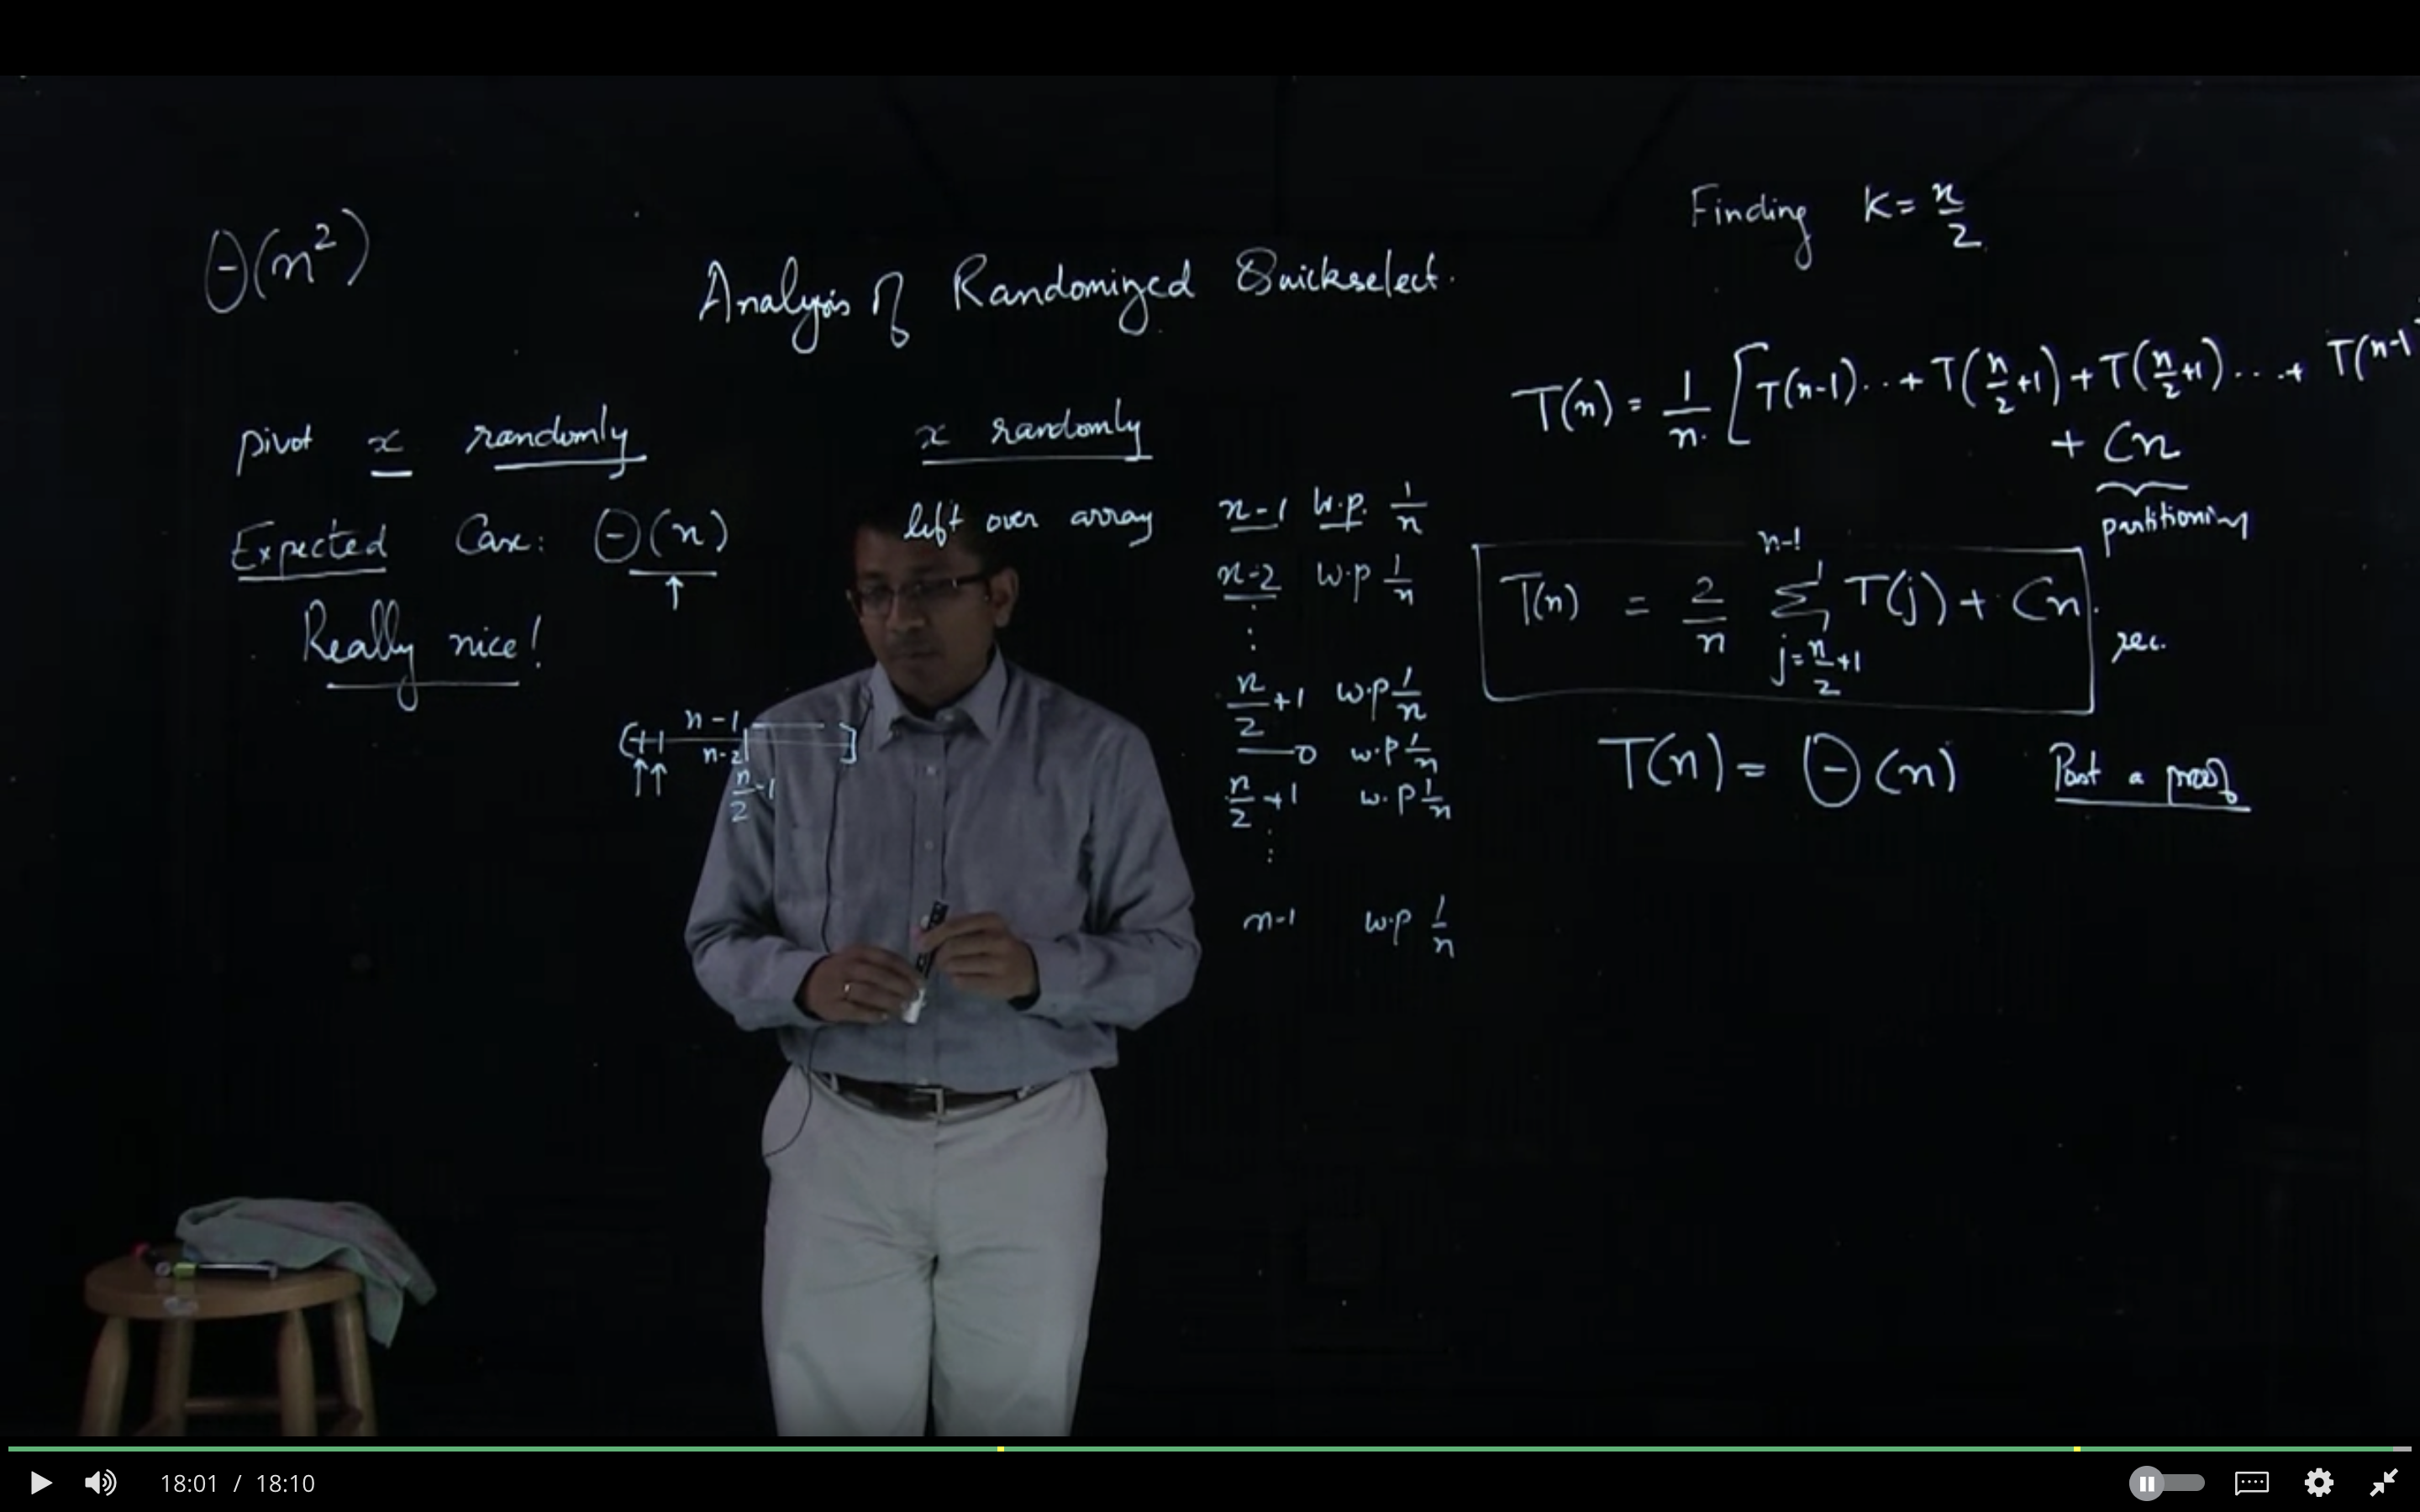 Θ(n²)
Analysis of Randomized Quickselect.
pivot x randomly
Expected Case: Θ(n)
↑
Really nice!
[++ n-1 ]
n-2
↑↑ n/2 -1
x randomly
left over array n-1 w.p. 1/n
n-2 w.p 1/n
⋮
n/2 +1 w.p 1/n
—0 w.p 1/n
n/2 +1 w.p 1/n
⋮
n-1 w.p 1/n
Finding K= n/2
T(n) = 1/n [T(n-1)..+ T(n/2 +1) + T(n/2 +1) ...+ T(n-1
+ Cn
partitioning
T(n) = 2/n Σ_{j=n/2 +1}^{n-1} T(j) + Cn. rec.
T(n) = Θ(n) Post a proof
18:01 / 18:10